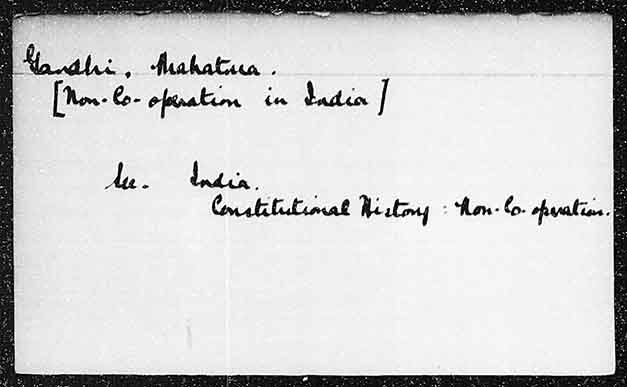 Gandhi, Mahatma.
[Non-Co-operation in India]
See. India.
Constitutional History : Non-Co-operation.